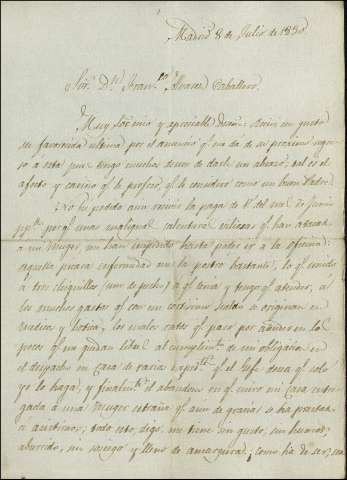 Madrid 8 de Julio de 1830
Sor. Dn. Fran.co Alvarez Caballero.
Muy Sor. mio y apreciable Dueño: Recivi con gusto
su favorecida ultima por el anuncio qe. me da de su proximo regre-
so a esta pues tengo muchos deseos de darle un abrazo: tal es el
afecto y cariño qe. le profeso, qe. le considero como un buen Padre.
No he podido aun recivir la paga de V. del mes de Junio
pp.do porqe. unas calenturas qe. han atacado
a mi Muger, me han impedido hasta poder ir a la oficina:
aquella picara enfermedad me la postró bastante, lo qe. unido
a tres chiquillos (uno de pecho) a qe. tenia y tengo qe. atender, a
los muchos gastos qe. con un cortisimo sueldo se originan en
Medico y Botica, los malos ratos qe. paso por
pocos qe. me quedan libres al cumplimto. de mi obligacion en
el despacho en Casa de varios expedtes. qe. el Gefe desea qe. solo
yo lo haga, y finalmte. el abandono en qe. miro mi Casa entre-
gada a una Muger estraña qe. aun de gracias se ha prestado
a asistirnos; todo esto, digo, me tiene sin gusto, sin humor,
aburrido, sin sosiego y lleno de amargura; como ha de ser,